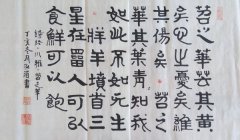 苕之華芸其黃
矣心之憂矣維
其傷矣苕之
華其葉青知我
如此不如无生
牂羊墳首三
星在罶人可以
食鮮可以飽
詩經小雅苕之華
丁亥冬月書